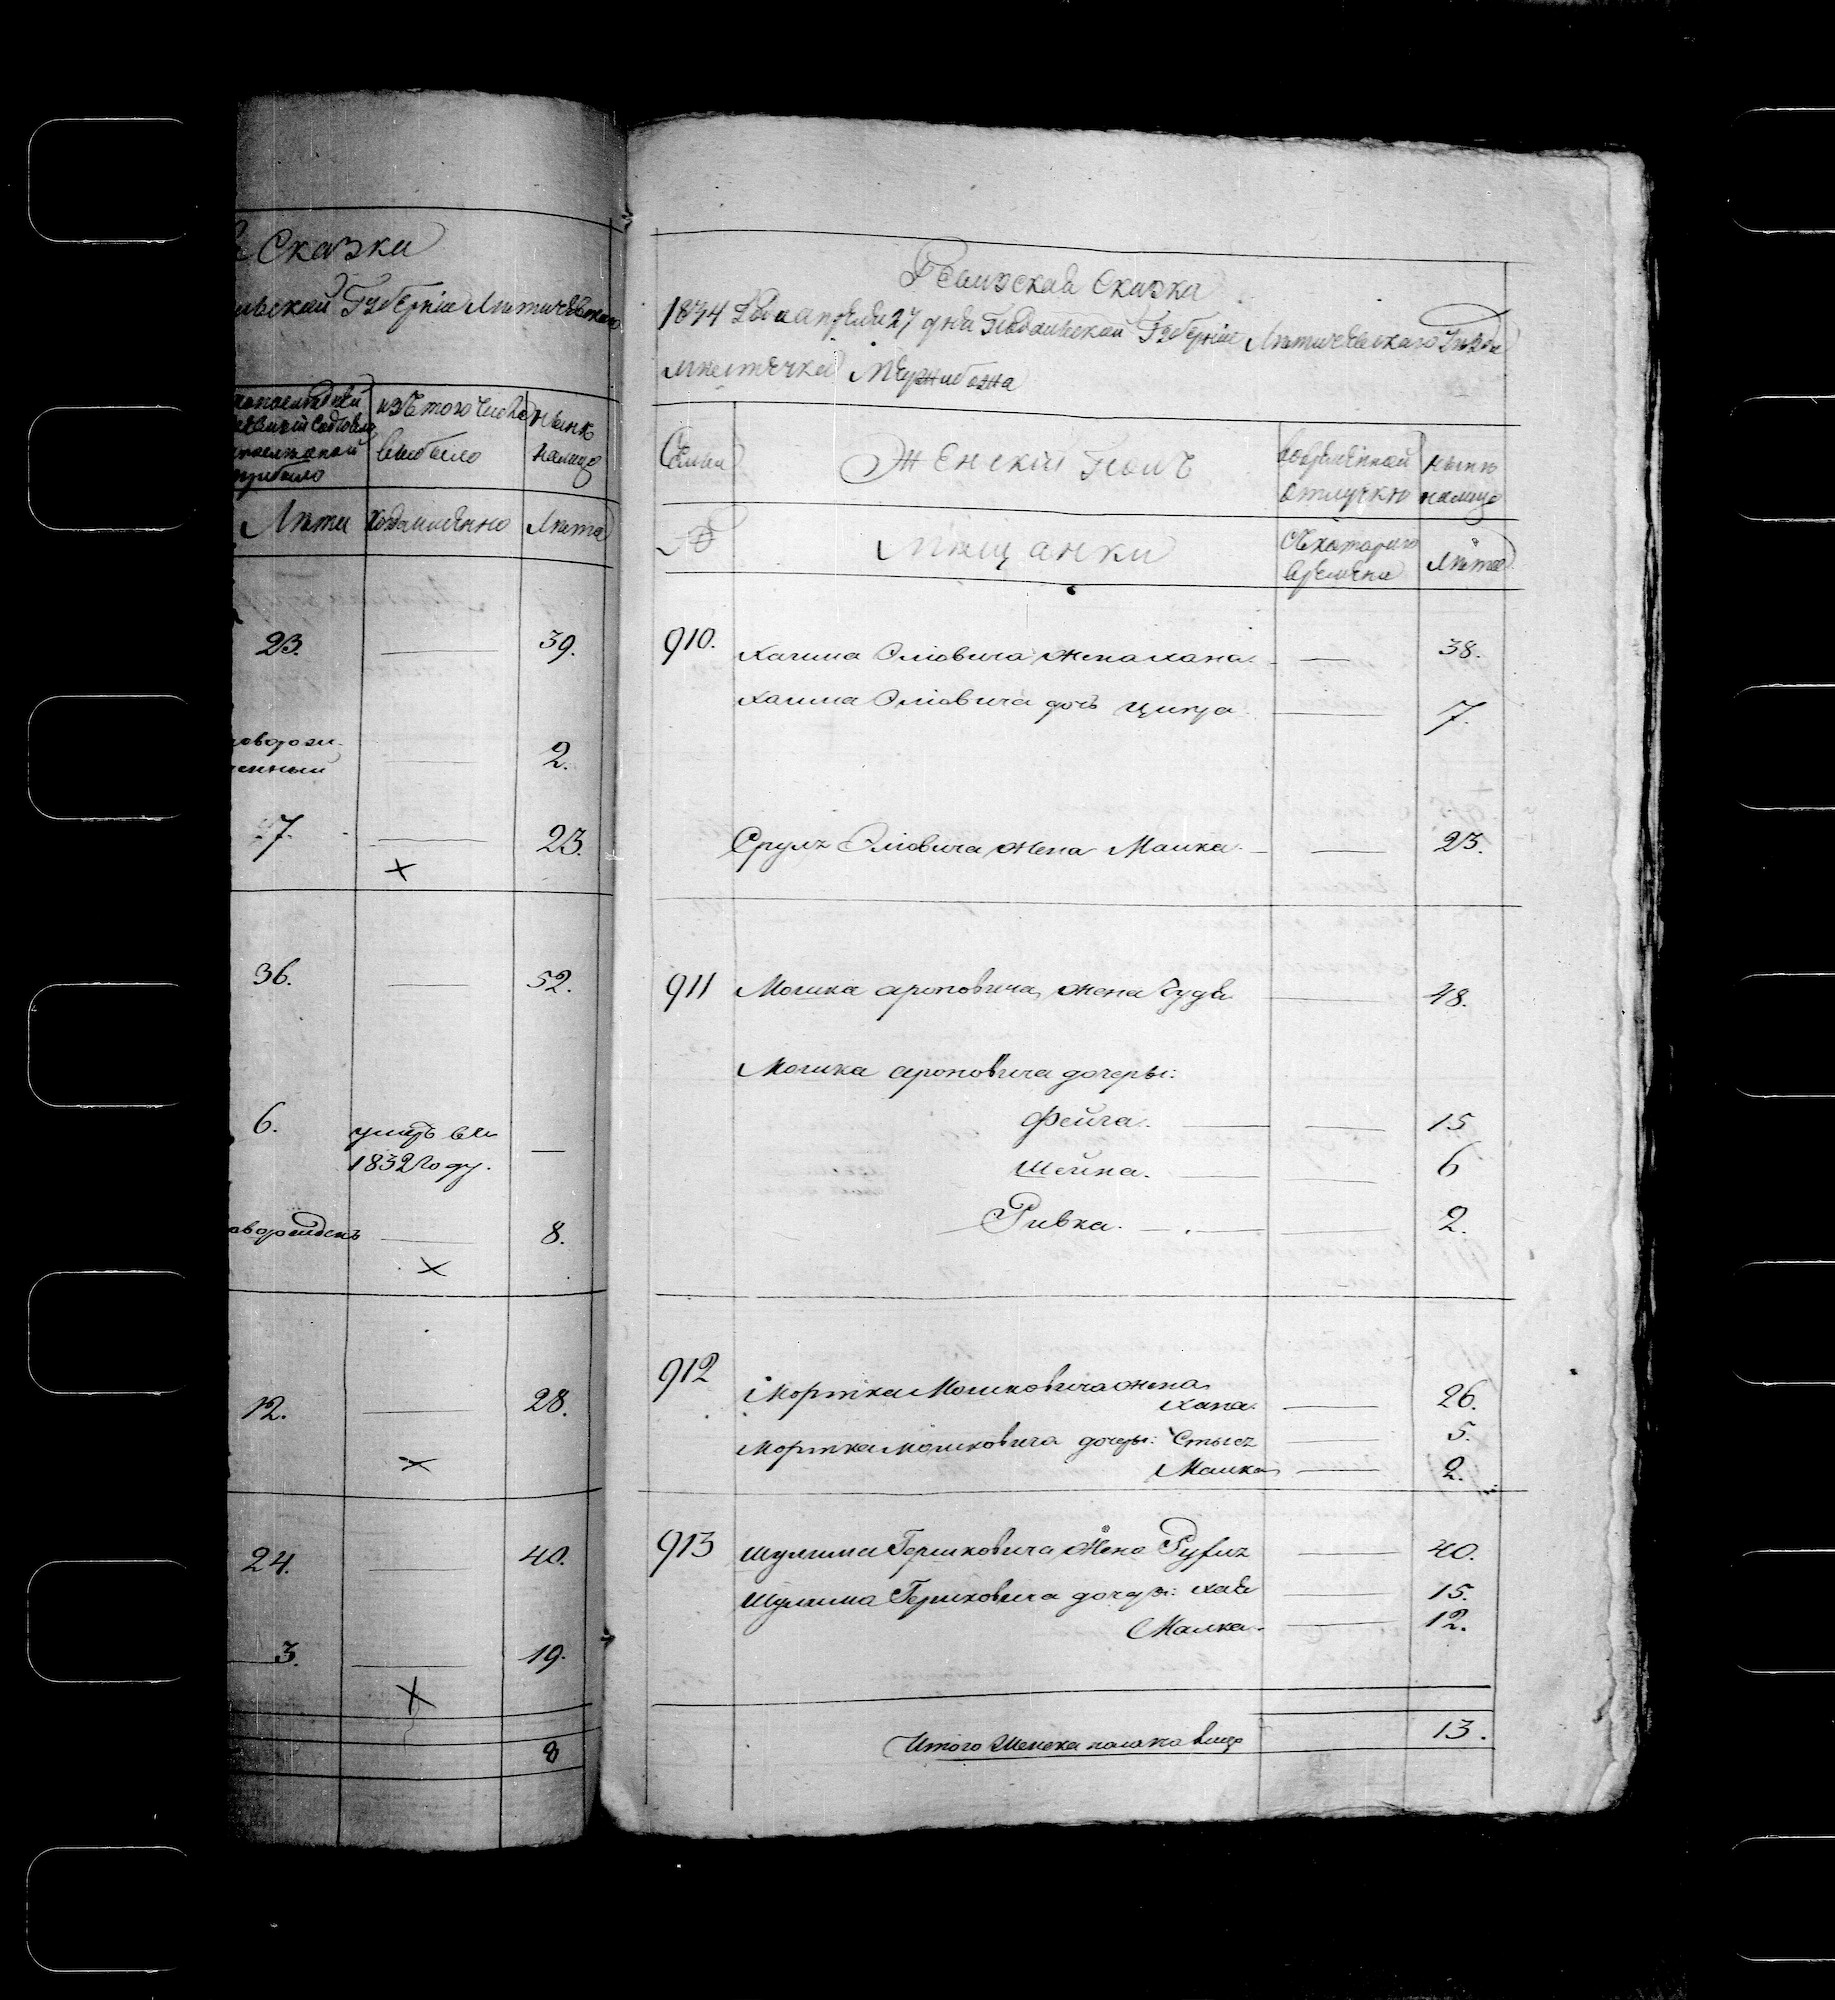 Сказки
Губерніи Летичевскаго
изъ того числа
выбыло
нынѣ
налицо
Лѣта
Когда именно
Лѣта
23.
39.
2.
23.
36.
52.
6.
умеръ въ
1832 году.
8.
12.
28.
24.
40.
3.
19.
8
Ревизская Сказка
1834 Года апреля 27 дня Подольской Губерніи Летичевскаго уезда
местечка Меджибожа
Семьи
Женскій Полъ
во временной
отлучке
нынѣ
налицо
№
Мещанки
Съ котораго
времени
Лѣта
910.
Хаима Эліовича жена хана.
38.
Хаима Эліовича дочь
7.
Срулъ Эліовича жена Малка.
23.
911
Мошка ароновича, жена
48.
Мошка ароновича дочеры:
Фейга.
15
Шейна.
6
Ривка.
2.
912
Мортка Мошковича жена
хана.
26.
Мортка мошковича дочеры:
5.
Малка
2.
913
Шулима Гершковича жена
40.
Шулима Гершковича дочеры: хая
15.
Малка.
12.
Итого женска пола на лицо
13.